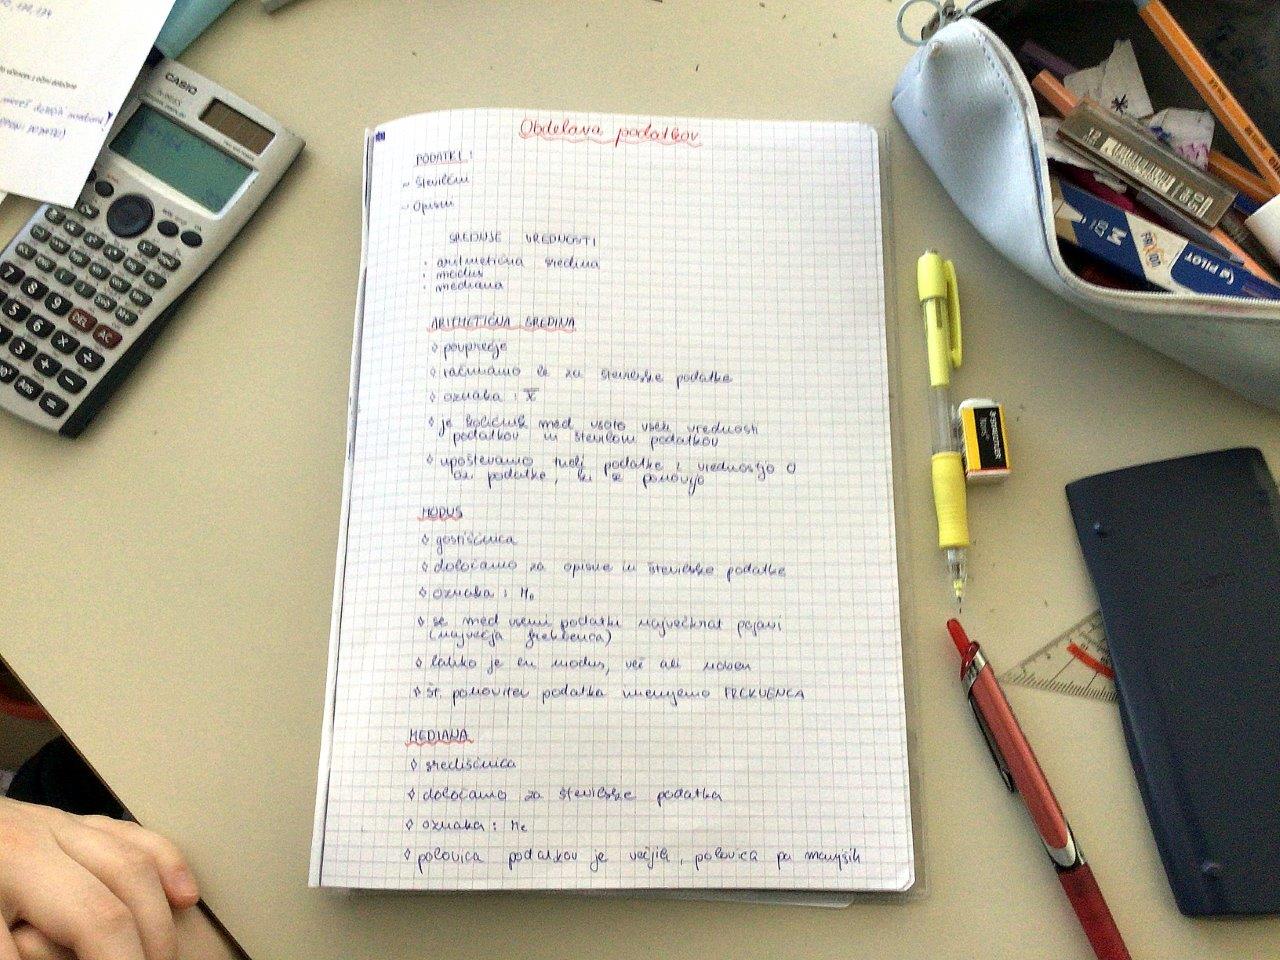 Obdelava podatkov
PODATKI:
- številski
- Opisni
SREDNJE VREDNOSTI
· aritmetična sredina
· modus
· mediana
ARITMETIČNA SREDINA
◊ povprečje
◊ računamo le za številske podatke
◊ oznaka : x̅
◊ je količnik med vsoto vseh vrednosti
podatkov in številom podatkov
◊ upoštevamo tudi podatke z vrednostjo 0
oz. podatke, ki se ponovijo
MODUS
◊ gostiščnica
◊ določamo za opisne in številske podatke
◊ oznaka : Mo
◊ se med vsemi podatki največkrat pojavi
(največja frekvenca)
◊ lahko je en modus, več ali noben
◊ št. ponovitev podatka imenujemo FREKVENCA
MEDIANA
◊ središčnica
◊ določamo za številske podatke
◊ oznaka : Me
◊ polovica podatkov je večjih, polovica pa manjših
CASIO
DEL
AC
7
8
9
4
5
6
×
÷
3
+
−
Ans
=
STAEDTLER
PILOT
0,5